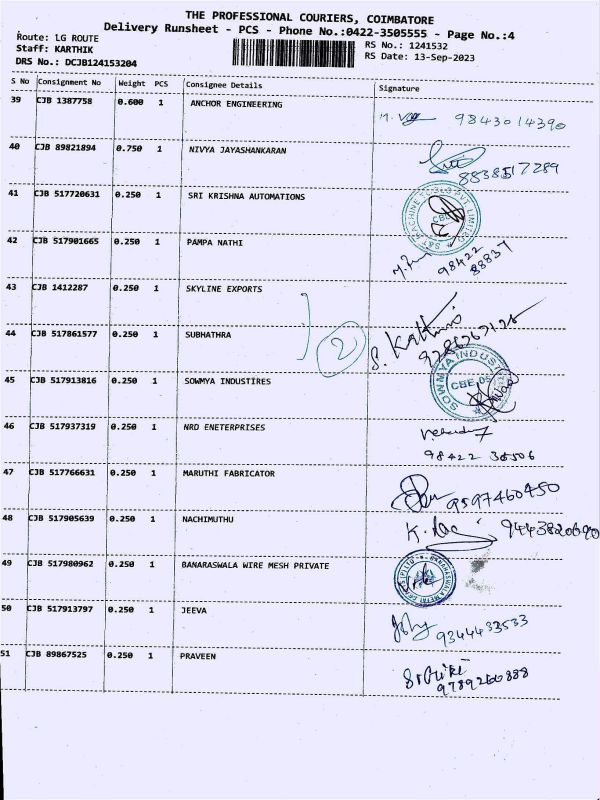 THE PROFESSIONAL COURIERS, COIMBATORE
Delivery Runsheet - PCS - Phone No.:0422-3505555 - Page No.:4
Route: LG ROUTE
Staff: KARTHIK
DRS No.: DCJB124153204
RS No.: 1241532
RS Date: 13-Sep-2023
S No Consignment No Weight PCS Consignee Details Signature
39 CJB 1387758 0.600 1 ANCHOR ENGINEERING 9843014390
40 CJB 89821894 0.750 1 NIVYA JAYASHANKARAN 8838517289
41 CJB 517720631 0.250 1 SRI KRISHNA AUTOMATIONS
S&T MACHINE TOOLS PVT. LIMITED
42 CJB 517901665 0.250 1 PAMPA NATHI 98422
88837
43 CJB 1412287 0.250 1 SKYLINE EXPORTS
44 CJB 517861577 0.250 1 SUBHATHRA 2
45 CJB 517913816 0.250 1 SOWMYA INDUSTIRES
SOWMYA INDUST
CBE
46 CJB 517937319 0.250 1 NRD ENETERPRISES
98422 36506
47 CJB 517766631 0.250 1 MARUTHI FABRICATOR 9597460450
48 CJB 517905639 0.250 1 NACHIMUTHU 9443820690
49 CJB 517980962 0.250 1 BANARASWALA WIRE MESH PRIVATE
50 CJB 517913797 0.250 1 JEEVA 9344433533
51 CJB 89867525 0.250 1 PRAVEEN
9789260888